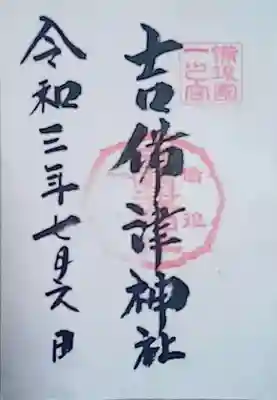 備後國
一之宮
吉備津神社
令和三年七月六日